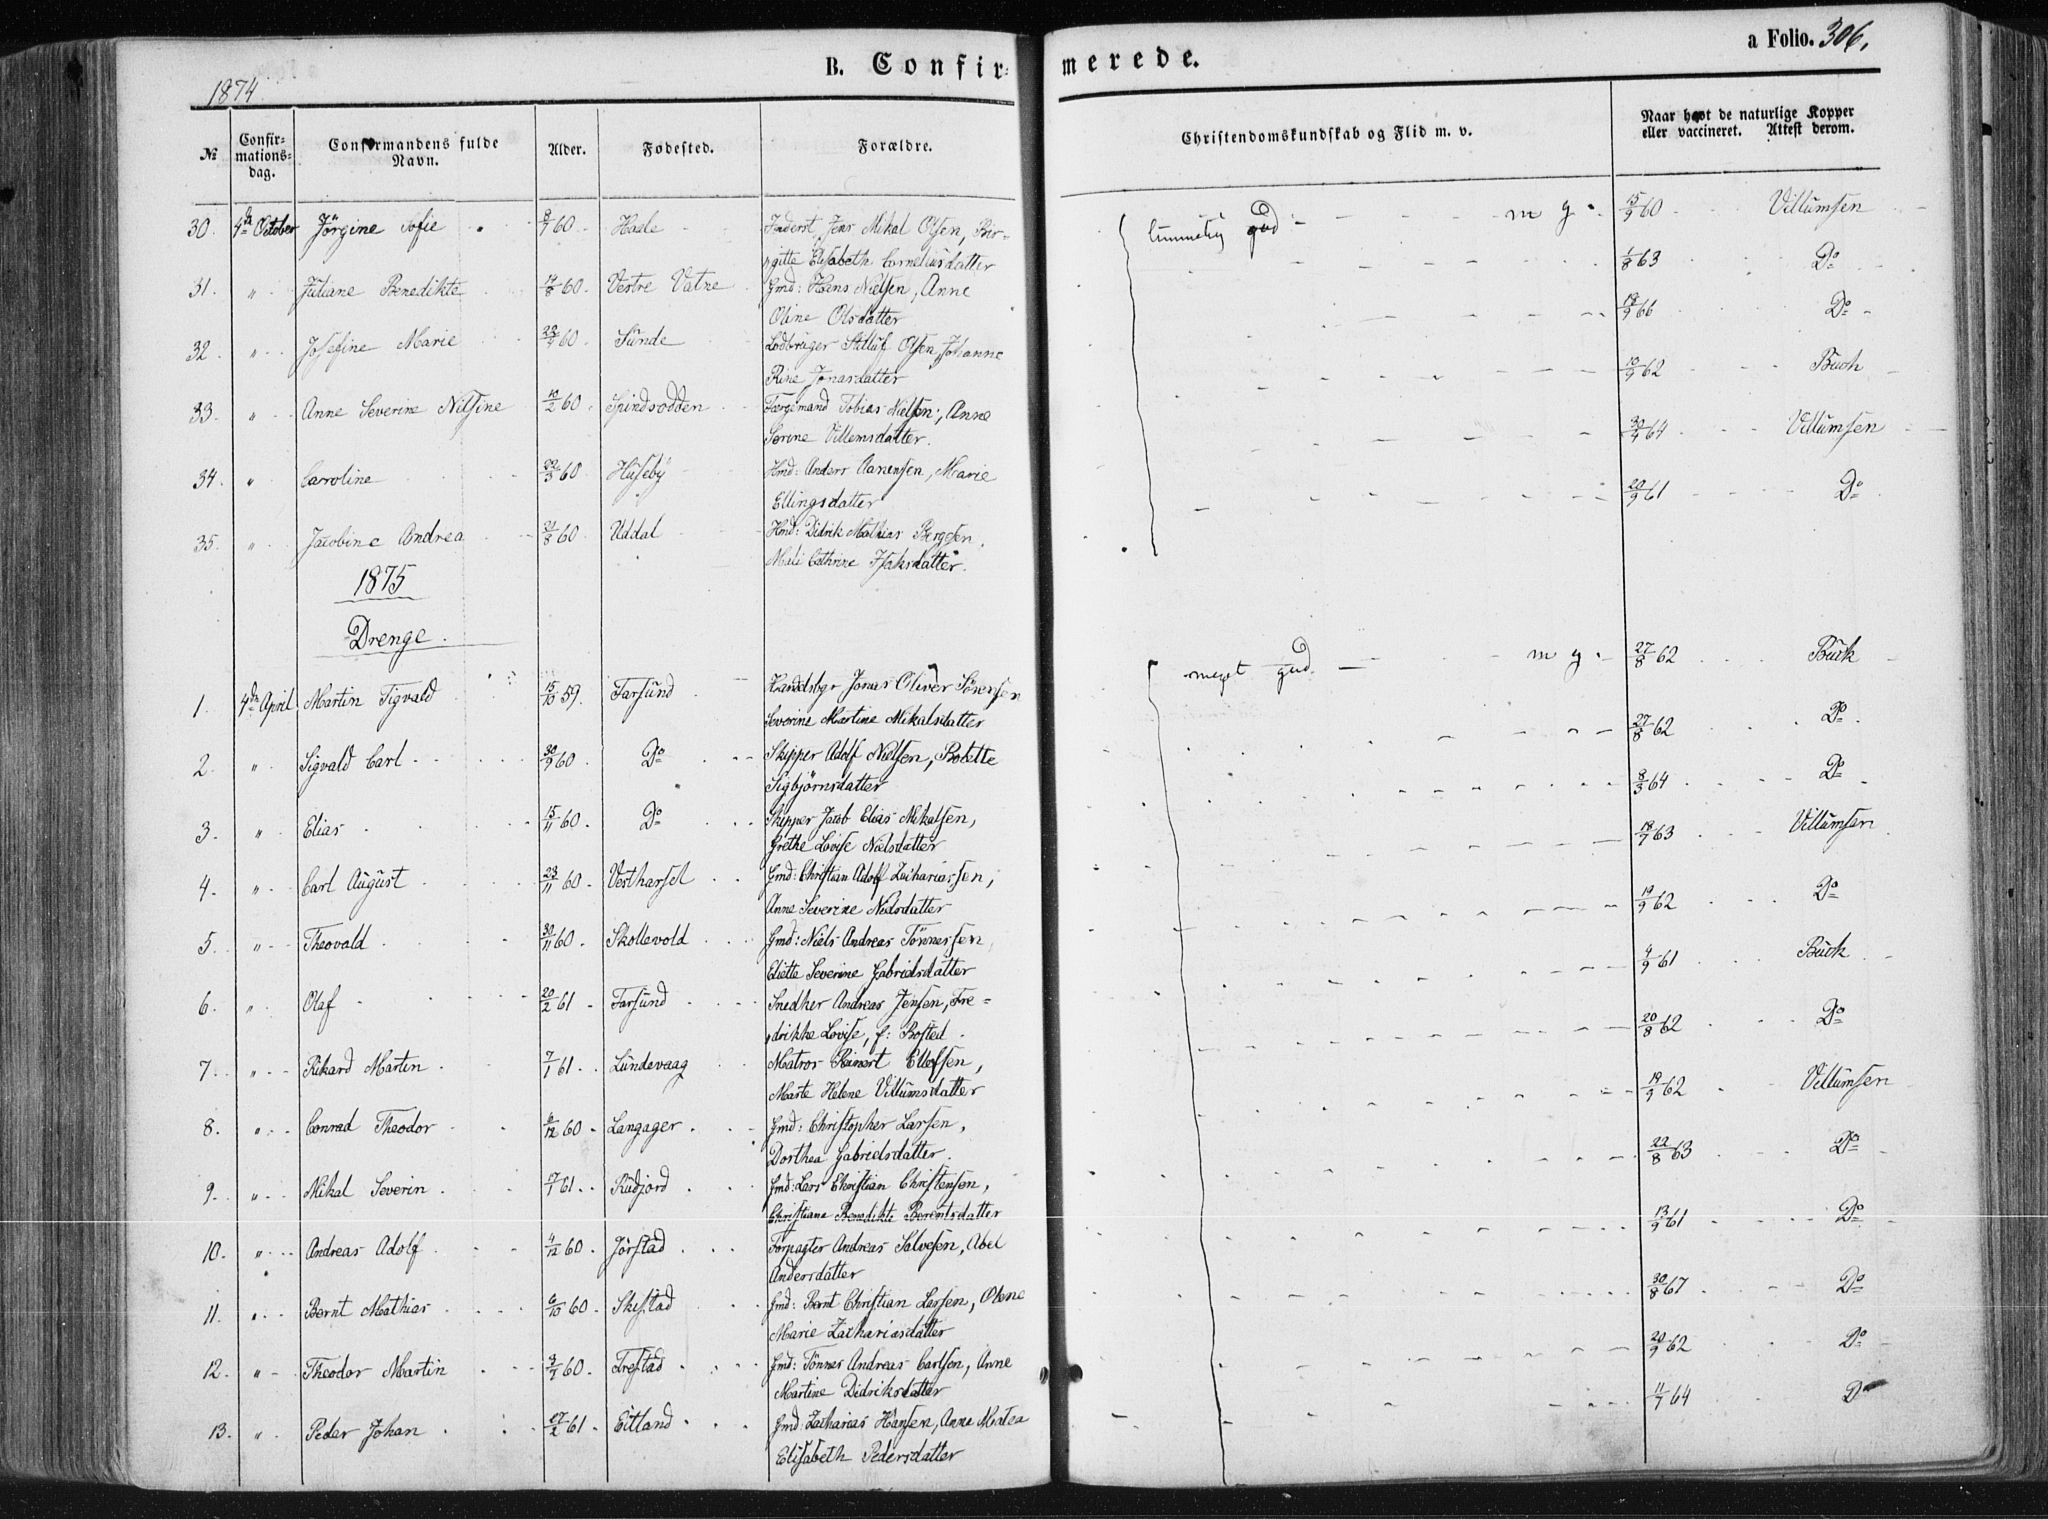 B. Confir- merede.
a Folio. 306.
1874
№ Confir-mations-dag. Confirmandens fulde Navn. Alder. Fødested. Forældre. Christendomskundskab og Flid m. v. Naar havt de naturlige Kopper eller vaccineret. Attest derom.
30. 4de October Jörgine Sofie 60 Jens Mikal Olsen, Bir- god m g. 15/9 60 Villumsen
gitte Elisabeth Corneliusdatter
31. " Juliane Benedikte 60. Vestre Vatne Gmd: Hans Nielsen, Anne 1/8 63 Do
Oline Olsdatter
32. " Josefine Marie 60. Sunde Olsen, Johanne 66 Do
Rine Jonasdatter
33. " Anne Severine Nilsine 10/2 60. Spindsodden Færgemand Tobias Nielsen, Anne 62 Buch
Serine Villemsdatter.
34. " Caroline 22/3 60. Huseby Hmd: Anders Aanensen, Marie 64 Villumsen
Ellingsdatter
35. " Jacobine Andrea 21/8 60. Uddal Hmd: Didrik Mathias Bergesen, 20/9 61 Do
Mali Cathrine Isaksdatter.
1875
Drenge.
1. 4de April Martin Sigvald 15/10 59. Farsund Jonas Oliver Sörensen meget god m g. 27/8 62 Buch
Severine Martine Mikalsdatter
2. " Sigvald Carl 30/9 60 Do Skipper Adolf Nielsen, Bolette 27/8 62 Do
Sigbjörnsdatter
3. " Elias 15/11 60. Do Skipper Jacob Elias Mikalsen, 8/3 64 Do
Grethe Lovise Nielsdatter
4. " Carl August 23/11 60. Vestharsel Gmd: Christian Adolf Zachariassen, 63 Villumsen
Anne Severine Nielsdatter
5. " Theovald 30/11 60. Skollevold Gmd: Niels Andreas Tönnessen 19/9 62 Do
Eliette Severine Gabrielsdatter
6. " Olaf 20/2 61. Farsund Snedker Andreas Jensen, Fre- 61 Buch
drikke Lovise, f:
7. " Rikard Martin 7/1 61. Lundevaag Matros Reinert Ellefsen, 20/8 62 Do
Marte Helene Villumsdatter
8. " Conrad Theodor 60. Langager Gmd: Christopher Larsen, 19/9 62 Villumsen
Dorthea Gabrielsdatter.
9. " Mikal Severin 61. Rudjord Gmd: Lars Christian Christensen, 22/8 63 Do
Christiane Benedikte Berentsdatter
10. " Andreas Adolf 4/12 60. Jörstad Forpagter Andreas Salvesen, Abel 13/9 61 Do
Andersdatter
11. " Bernt Mathias 6/10 60. Skistad Gmd: Bernt Christian Larsen, Olene 30/8 67 Do
Marie Zachariasdatter
12. " Theodor Martin 60. Frestad Gmd: Tönnes Andreas Carlsen, Anne 20/9 62 Do
Martine Didriksdatter
13. " Peder Johan 27/2 61. Eitland Gmd: Zacharias Hansen, Anne Matea 11/7 64 Do
Elisabeth Pedersdatter